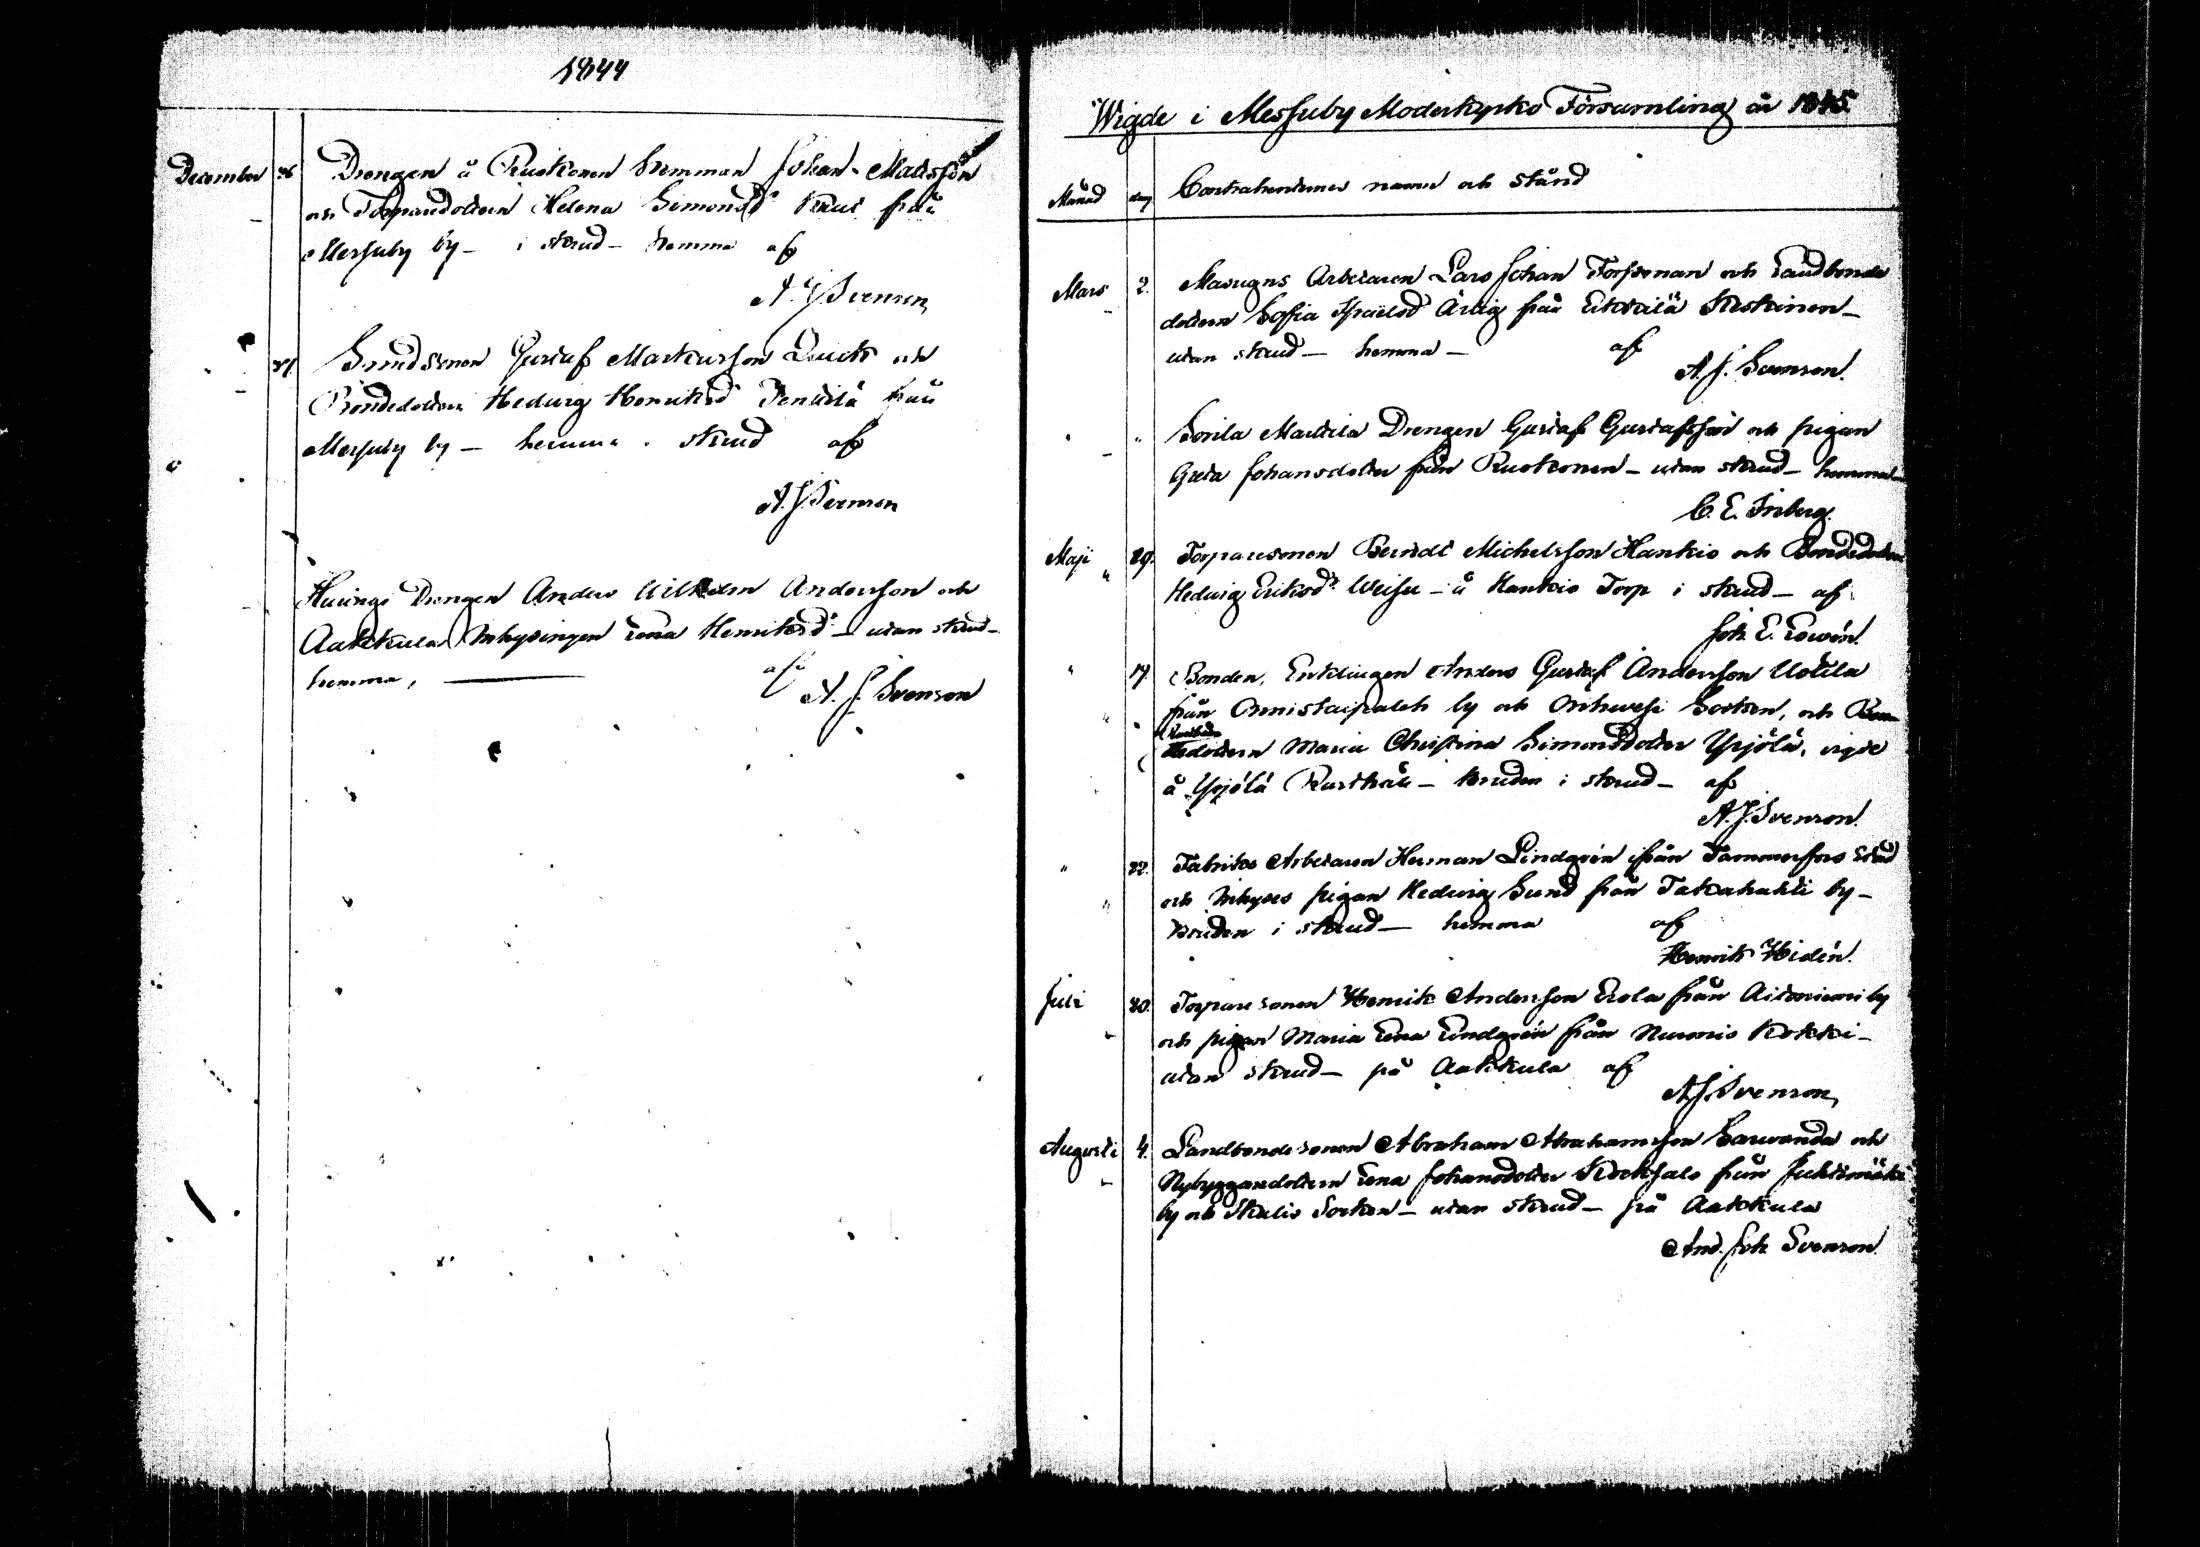 1844
December 26 Drengen å Ruokonen hemman Johan Matsson
och Torparedottren Helena Simonsd från
Messuby by - i skrud - hemma af
A. J. Svenson
27 Sundsonen Gustaf Markusson och
Bondedottren Hedvig Henriksd Penttilä från
Messuby by - hemma - skrud af
A. J. Svenson
Drengen Anders Wilhelm Andersson och
Aakkula Inhysingen Lena Henriksdr - utan skrud -
hemma, af
A. J. Svenson
Wigde i Messuby Moderkyrko Församling år 1845.
Månad dag Contrahenternes namn och stånd
Mars 2. Masugns Arbetaren Lars Johan Forssman och Landbonde
dottern Sofia Israelsd Ärlig från Keskinen -
utan skrud - hemma - af
A. J. Svenson.
" " Sorila Mattila Drengen Gustaf Gustafsson och pigan
Greta Johansdotter från Ruokonen - utan skrud - hemma
C. E. Friberg.
Maji 29. Torparesonen Berndt Michelsson Hankio och Bondedottren
Hedvig Eriksdr - å Hankio Torp i skrud - af
Joh. E. Lowén.
" 17. Bonden, Enklingen Anders Gustaf Andersson Uotila
från Onnistaipaleh by och Orihvesi Socken, och Bon-
dedottern Maria Christina Simonsdotter Yrjölä, vigde
å Yrjölä Rusthåll - bruden i skrud - af
A. J. Svenson.
" 22. Fabriks Arbetaren Herman Lindqvén ifrån Tammerfors Stad
och Inhyses pigan Hedvig Sund från Takahuhti by -
Bruden i skrud - hemma af
Henrik Hidén.
Juli 20. Torpare sonen Henrik Andersson Erola från Aitoniemi by
och pigan Maria Lena Lindqvén från Nurmis Kokki -
utan skrud - på Aakkula af
A. J. Svenson,
Augusti 4. Landbonde sonen Abraham Abrahamsson Sarvanda och
Nybyggaredottern Lena Johansdotter från Juhtimäki
by och Socken - utan skrud - på Aakkula
And. Joh. Svenson